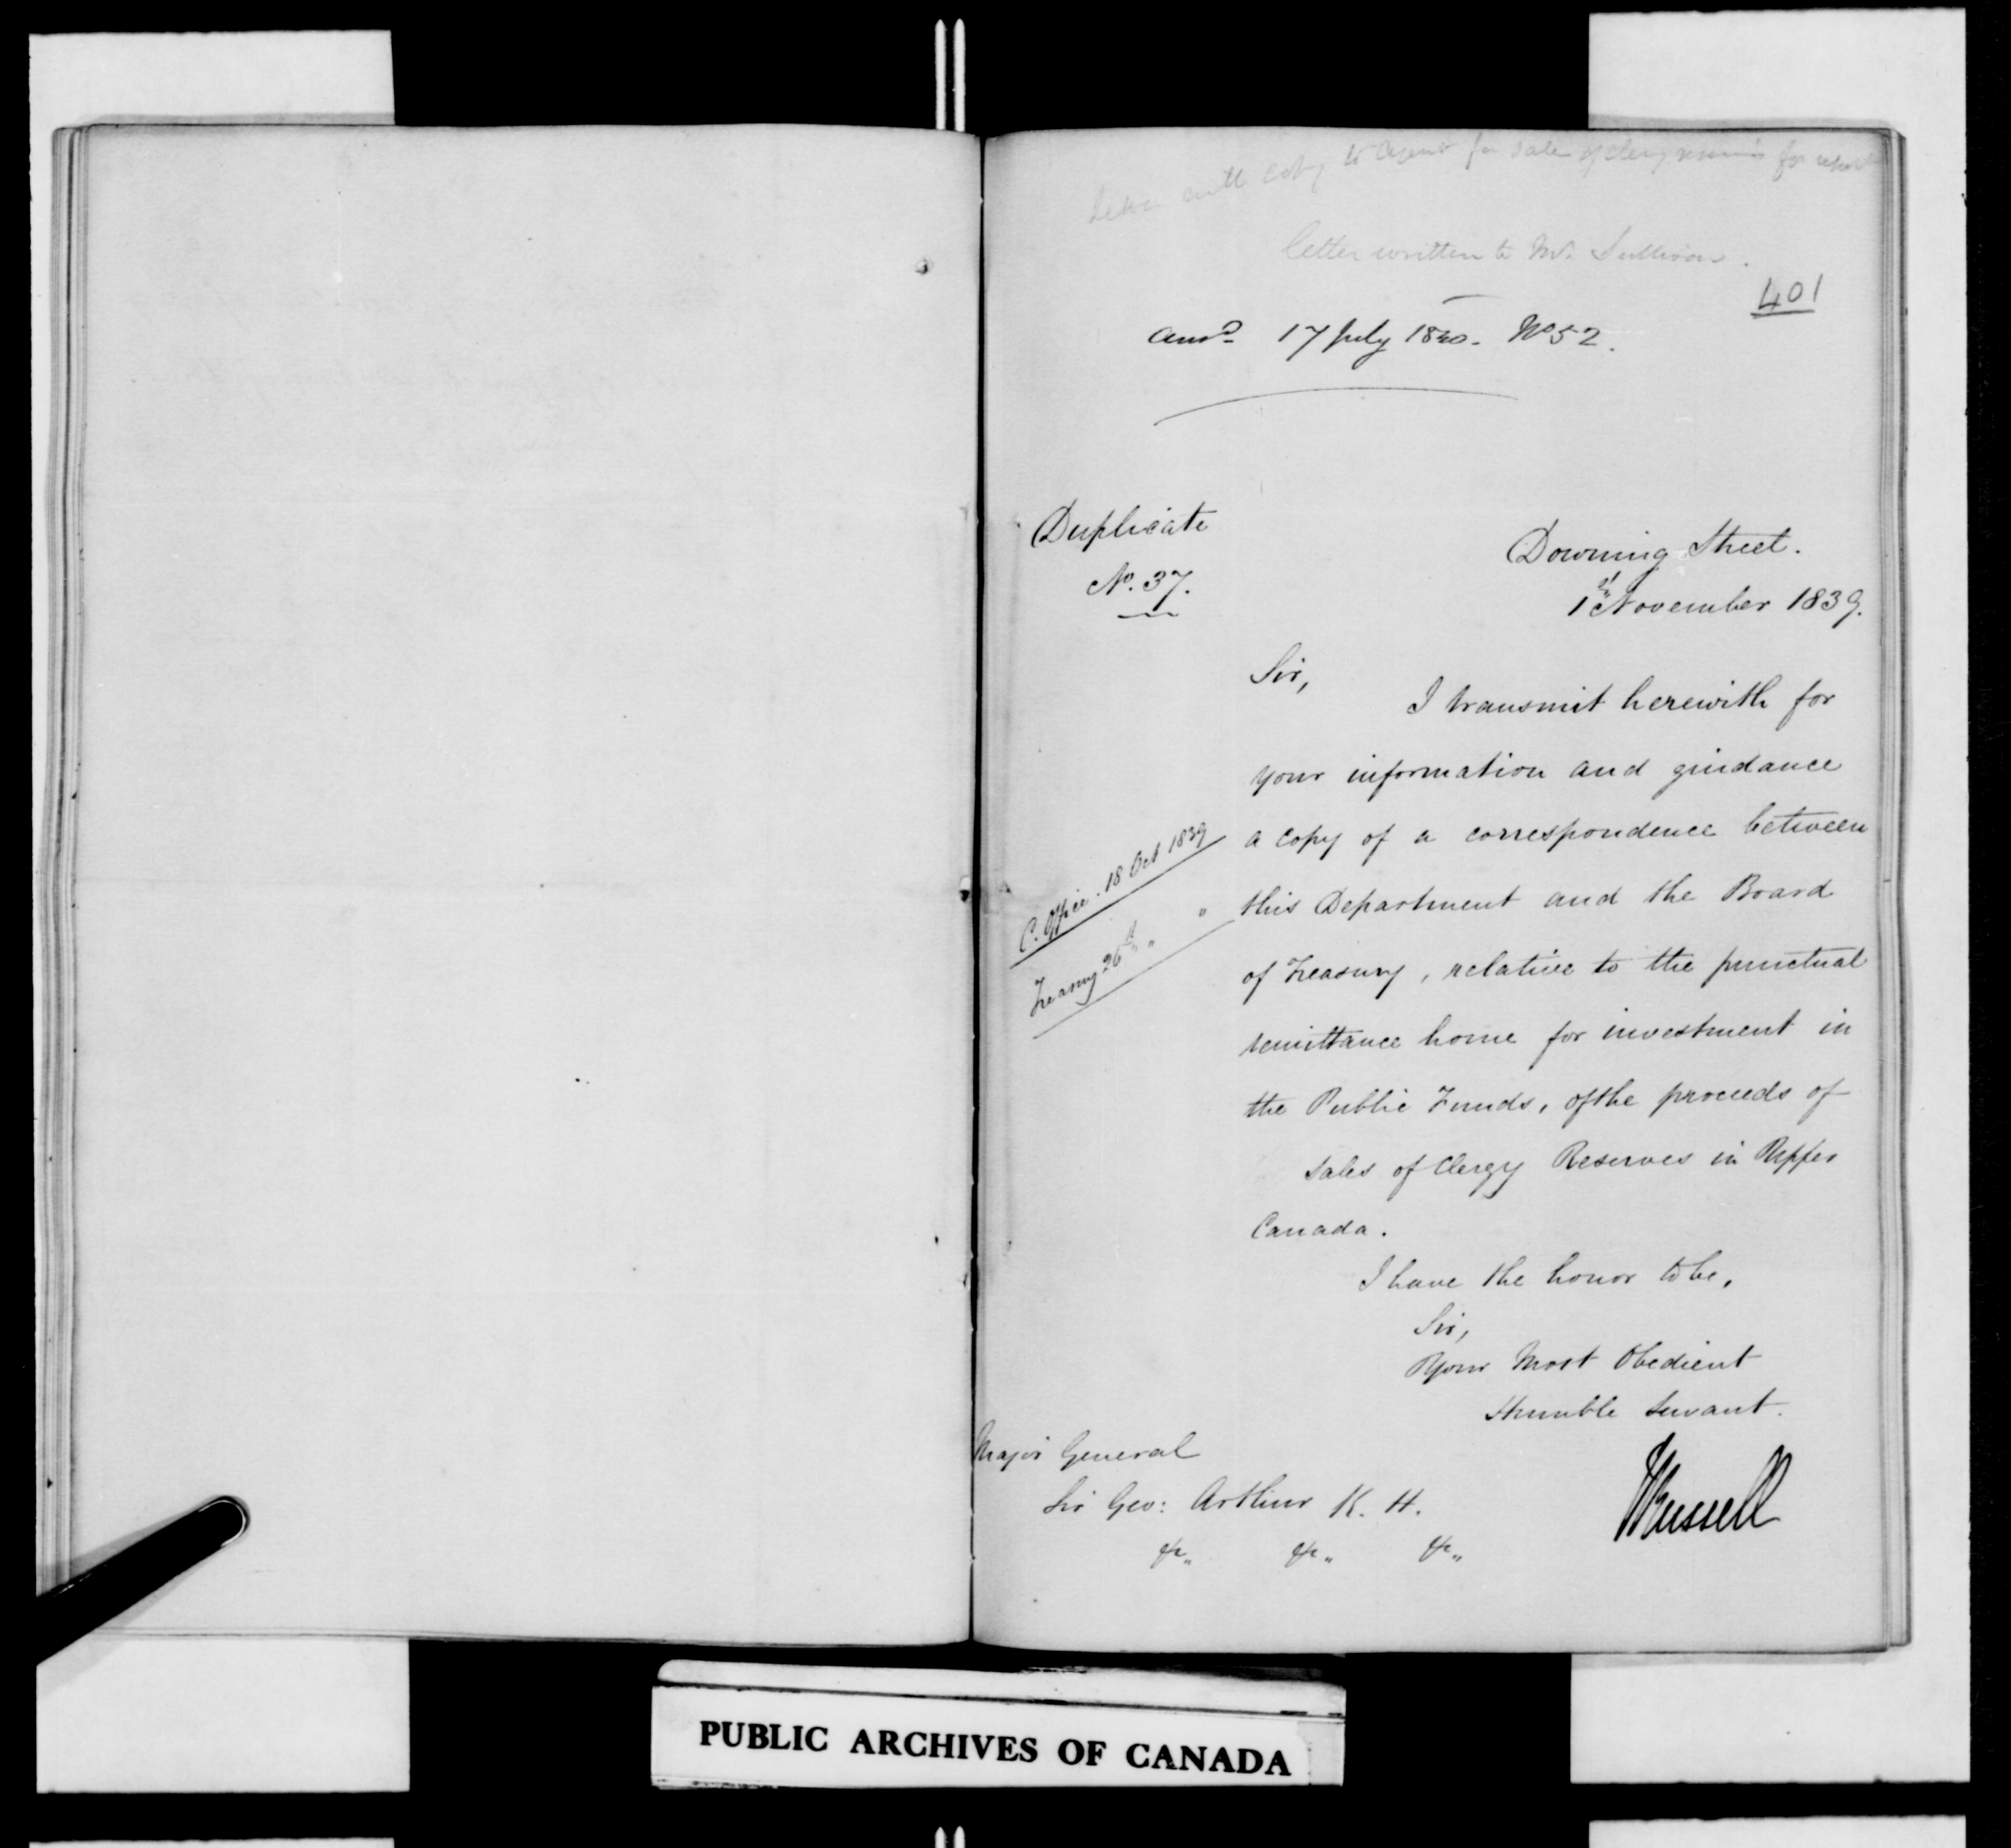 Letter with Copy to Agent for Sale of Clergy reserves for report
letter written to Mr. Sullivan.
401
Ansd. 17 July 1840. No 52.
Duplicate
No. 37.
Downing Street.
1st November 1839.
Sir,
I transmit herewith for
your information and guidance
a copy of a correspondence between
C. Office. 18 Oct 1839
this Department and the Board
Treasury 26th " "
of Treasury, relative to the punctual
remittance home for investment in
the Public Funds, of the proceeds of
Sales of Clergy Reserves in Upper
Canada.
I have the honor to be,
Sir,
Your Most Obedient
Humble Servant.
Major General
Sir Geo: Arthur K. H.
JRussell
&c. &c. &c.
PUBLIC ARCHIVES OF CANADA